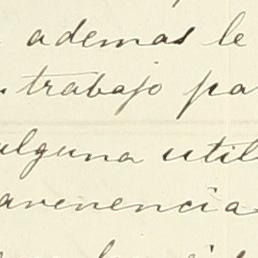 ademas le
trabajo pa
alguna util
avenencia